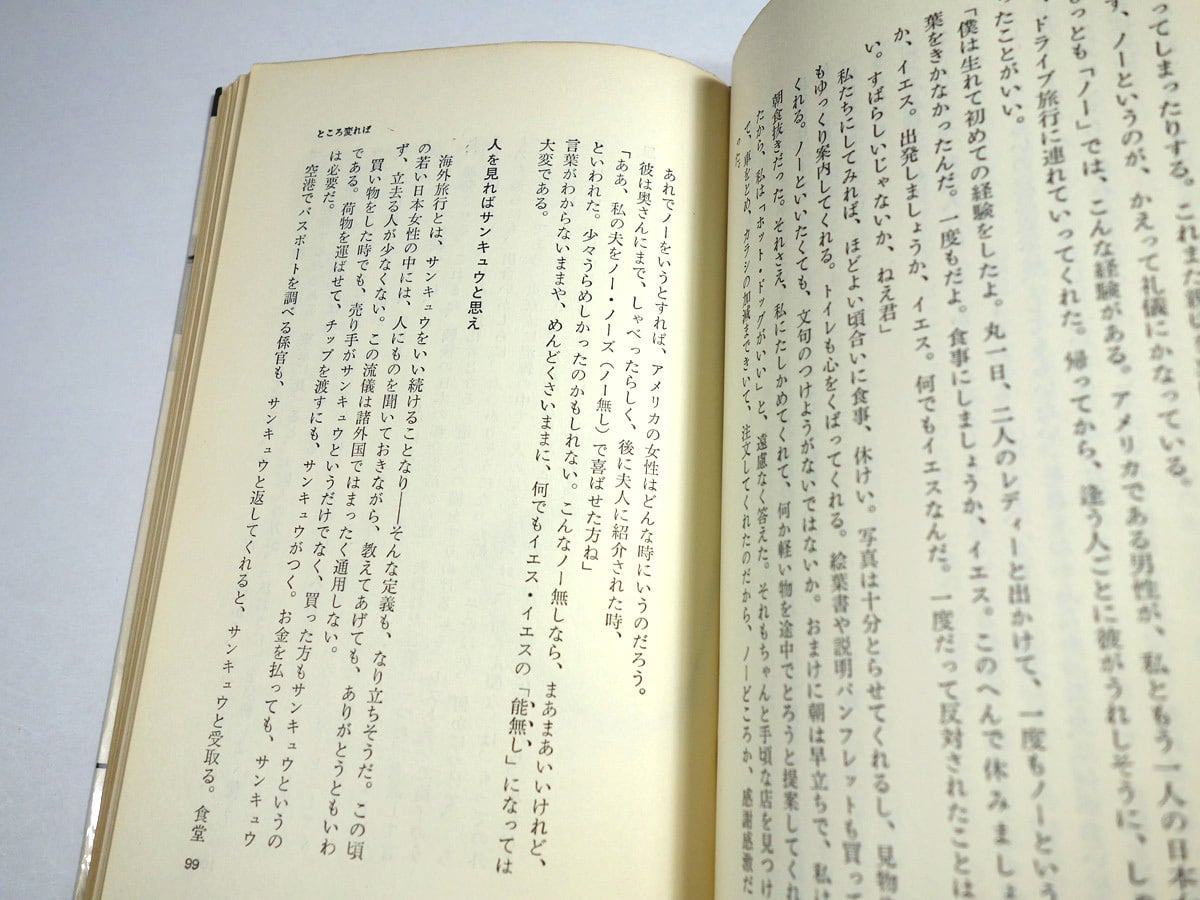 ってしまったりする。これまた
す、ノーというのが、かえって礼儀にかなっている。
もっとも「ノー」では、こんな経験がある。アメリカである男性が、私ともう一人の日本
、ドライブ旅行に連れていってくれた。帰ってから、逢う人ごとに彼がうれしそうに、し
ったことがいい。
「僕は生れて初めての経験をしたよ。丸一日、二人のレディーと出かけて、一度もノーという
葉をきかなかったんだ。一度もだよ。食事にしましょうか、イエス。このへんで休みましょ
か、イエス。出発しましょうか、イエス。何でもイエスなんだ。一度だって反対されたことは
い。すばらしいじゃないか、ねえ君」
私たちにしてみれば、ほどよい頃合いに食事、休けい。写真は十分とらせてくれるし、見物
もゆっくり案内してくれる。トイレも心をくばってくれる。絵葉書や説明パンフレットも買って
くれる。ノーといいたくても、文句のつけようがないではないか。おまけに朝は早立ちで、私は
朝食抜きだった。それさえ、私にたしかめてくれて、何か軽い物を途中でとろうと提案してくれ
たから、私は「ホット・ドッグがいい」と、遠慮なく答えた。それもちゃんと手頃な店を見つけ
て、車をとめ、カラシの加減まできいて、注文してくれたのだから、ノーどころか、感謝感激だ
った。
あれでノーをいうとすれば、アメリカの女性はどんな時にいうのだろう。
彼は奥さんにまで、しゃべったらしく、後に夫人に紹介された時、
「ああ、私の夫をノー・ノーズ（ノー無し）で喜ばせた方ね」
といわれた。少々うらめしかったのかもしれない。こんなノー無しなら、まあまあいいけれど、
言葉がわからないままや、めんどくさいままに、何でもイエス・イエスの「能無し」になっては
大変である。
人を見ればサンキュウと思え
海外旅行とは、サンキュウをいい続けることなり――そんな定義も、なり立ちそうだ。この頃
の若い日本女性の中には、人にものを聞いておきながら、教えてあげても、ありがとうともいわ
ず、立去る人が少なくない。この流儀は諸外国ではまったく通用しない。
買い物をした時でも、売り手がサンキュウというだけでなく、買った方もサンキュウというの
である。荷物を運ばせて、チップを渡すにも、サンキュウがつく。お金を払っても、サンキュウ
は必要だ。
空港でパスポートを調べる係官も、サンキュウと返してくれると、サンキュウと受取る。食堂
ところ変れば
99